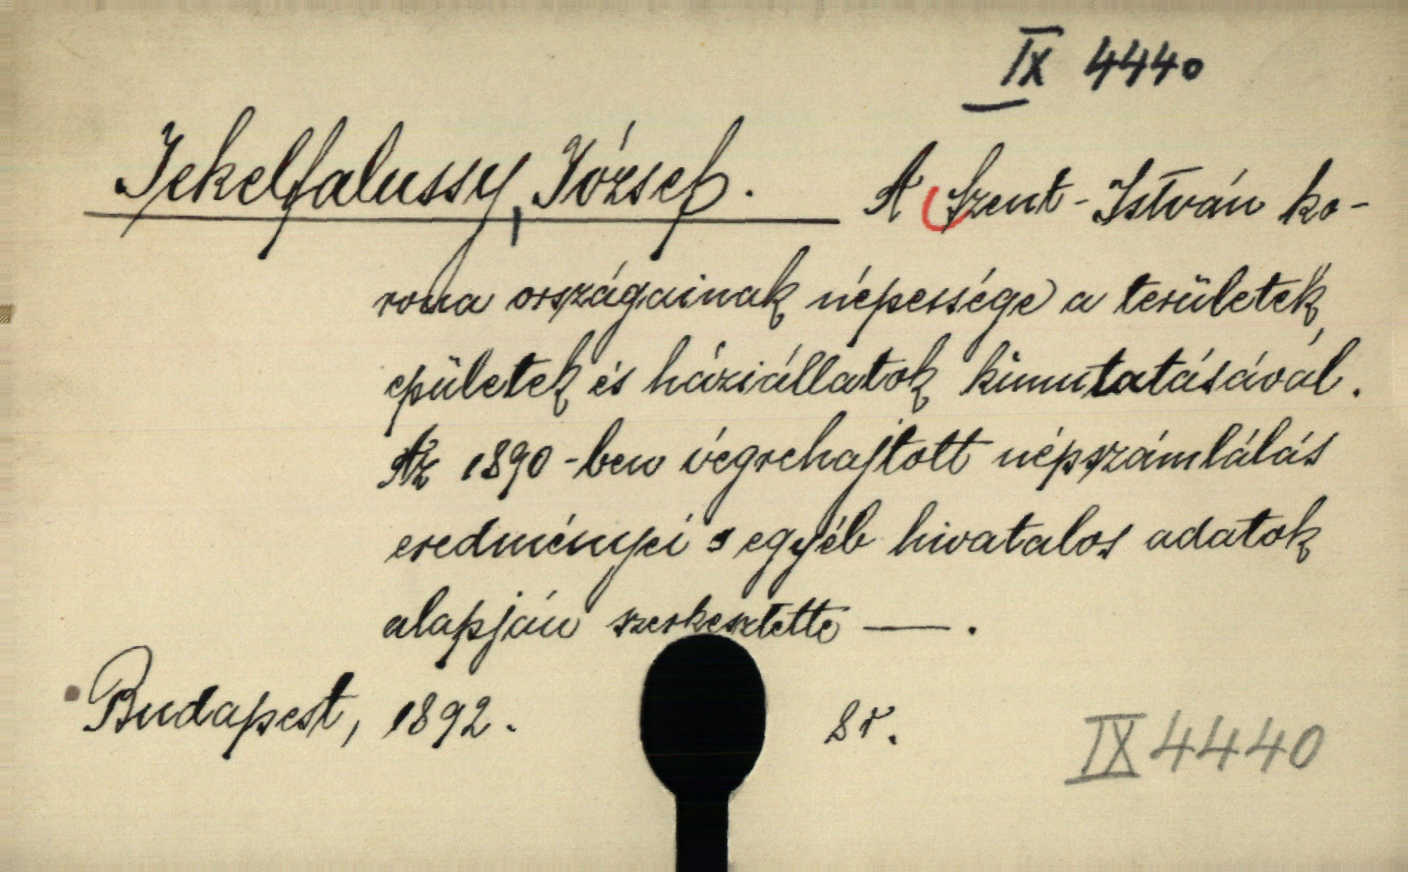 IX 4440
Jekelfalussy, József. A Szent-István ko-
rona országainak népessége a területek,
epületek és háziállatok kimutatásával.
Az 1890-ben végrehajtott népszámlálás
eredményei s egyéb hivatalos adatok
alapján szerkesztette —.
Budapest, 1892. 8r.
IX 4440